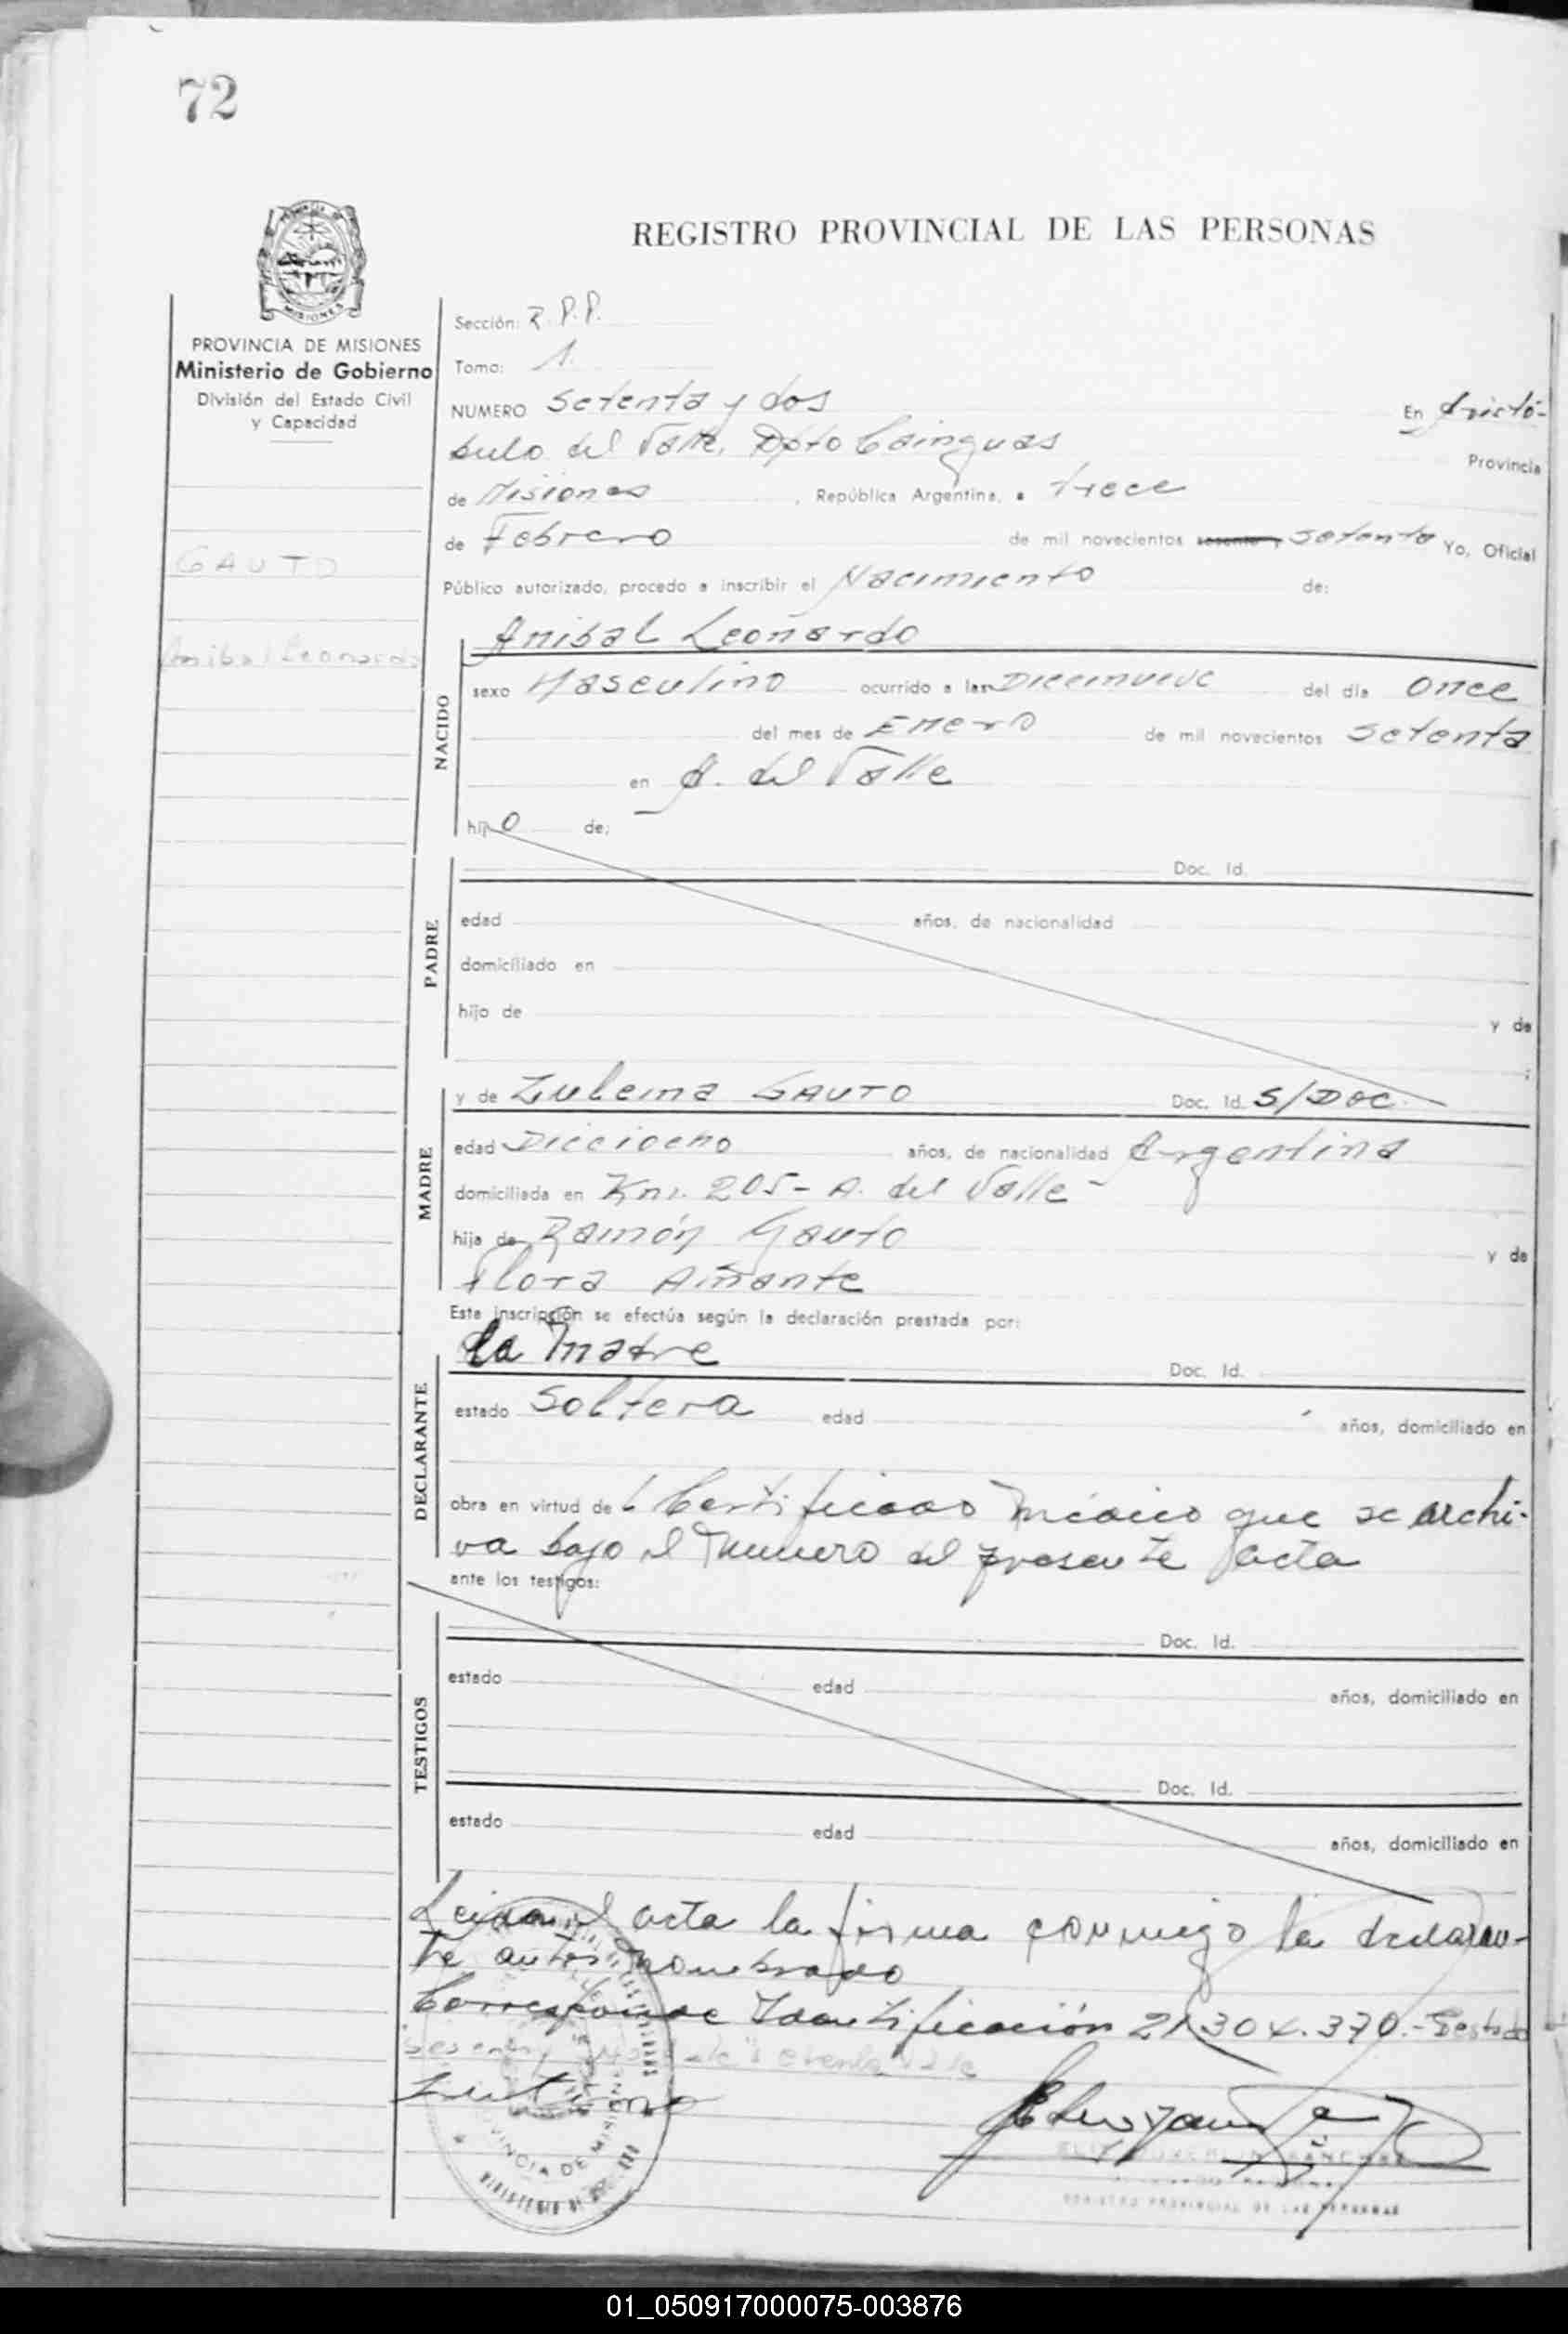 72
REGISTRO PROVINCIAL DE LAS PERSONAS
MISIONES
PROVINCIA DE MISIONES
Ministerio de Gobierno
División del Estado Civil
y Capacidad
GAUTO
Anibal Leonardo
Sección: R.P.P.
Tomo: 1.
NUMERO Setenta y dos En Aristó-
bulo del Valle, Dpto Cainguas Provincia
de Misiones, República Argentina, a trece
de Febrero de mil novecientos sesenta y setenta Yo, Oficial
Público autorizado, procedo a inscribir el Nacimiento de:
NACIDO
Anibal Leonardo
sexo Masculino ocurrido a las Diecinueve del día Once
del mes de Enero de mil novecientos Setenta
en A. del Valle
hijo de:
PADRE
Doc. Id.
edad años, de nacionalidad
domiciliado en
hijo de y de
;
MADRE
y de Zulema GAUTO Doc. Id. S/Doc.
edad Dieciocho años, de nacionalidad Argentina
domiciliada en Km. 205- A. del Valle -
hija de Ramón Gauto y de
Flora Amante
Esta inscripción se efectúa según la declaración prestada por:
DECLARANTE
La Madre Doc. Id.
estado Soltera edad años, domiciliado en
obra en virtud de Certificado médico que se archi-
va bajo el numero del presente acta
ante los testigos:
TESTIGOS
Doc. Id.
estado edad años, domiciliado en
Doc. Id.
estado edad años, domiciliado en
Leida el acta la firma conmigo la declaran-
te antes nombrado
Corresponde Identificación 21.304.370.- Testado
REGISTRO PROVINCIAL DE LAS PERSONAS
PROVINCIA DE MISIONES
01_050917000075-003876